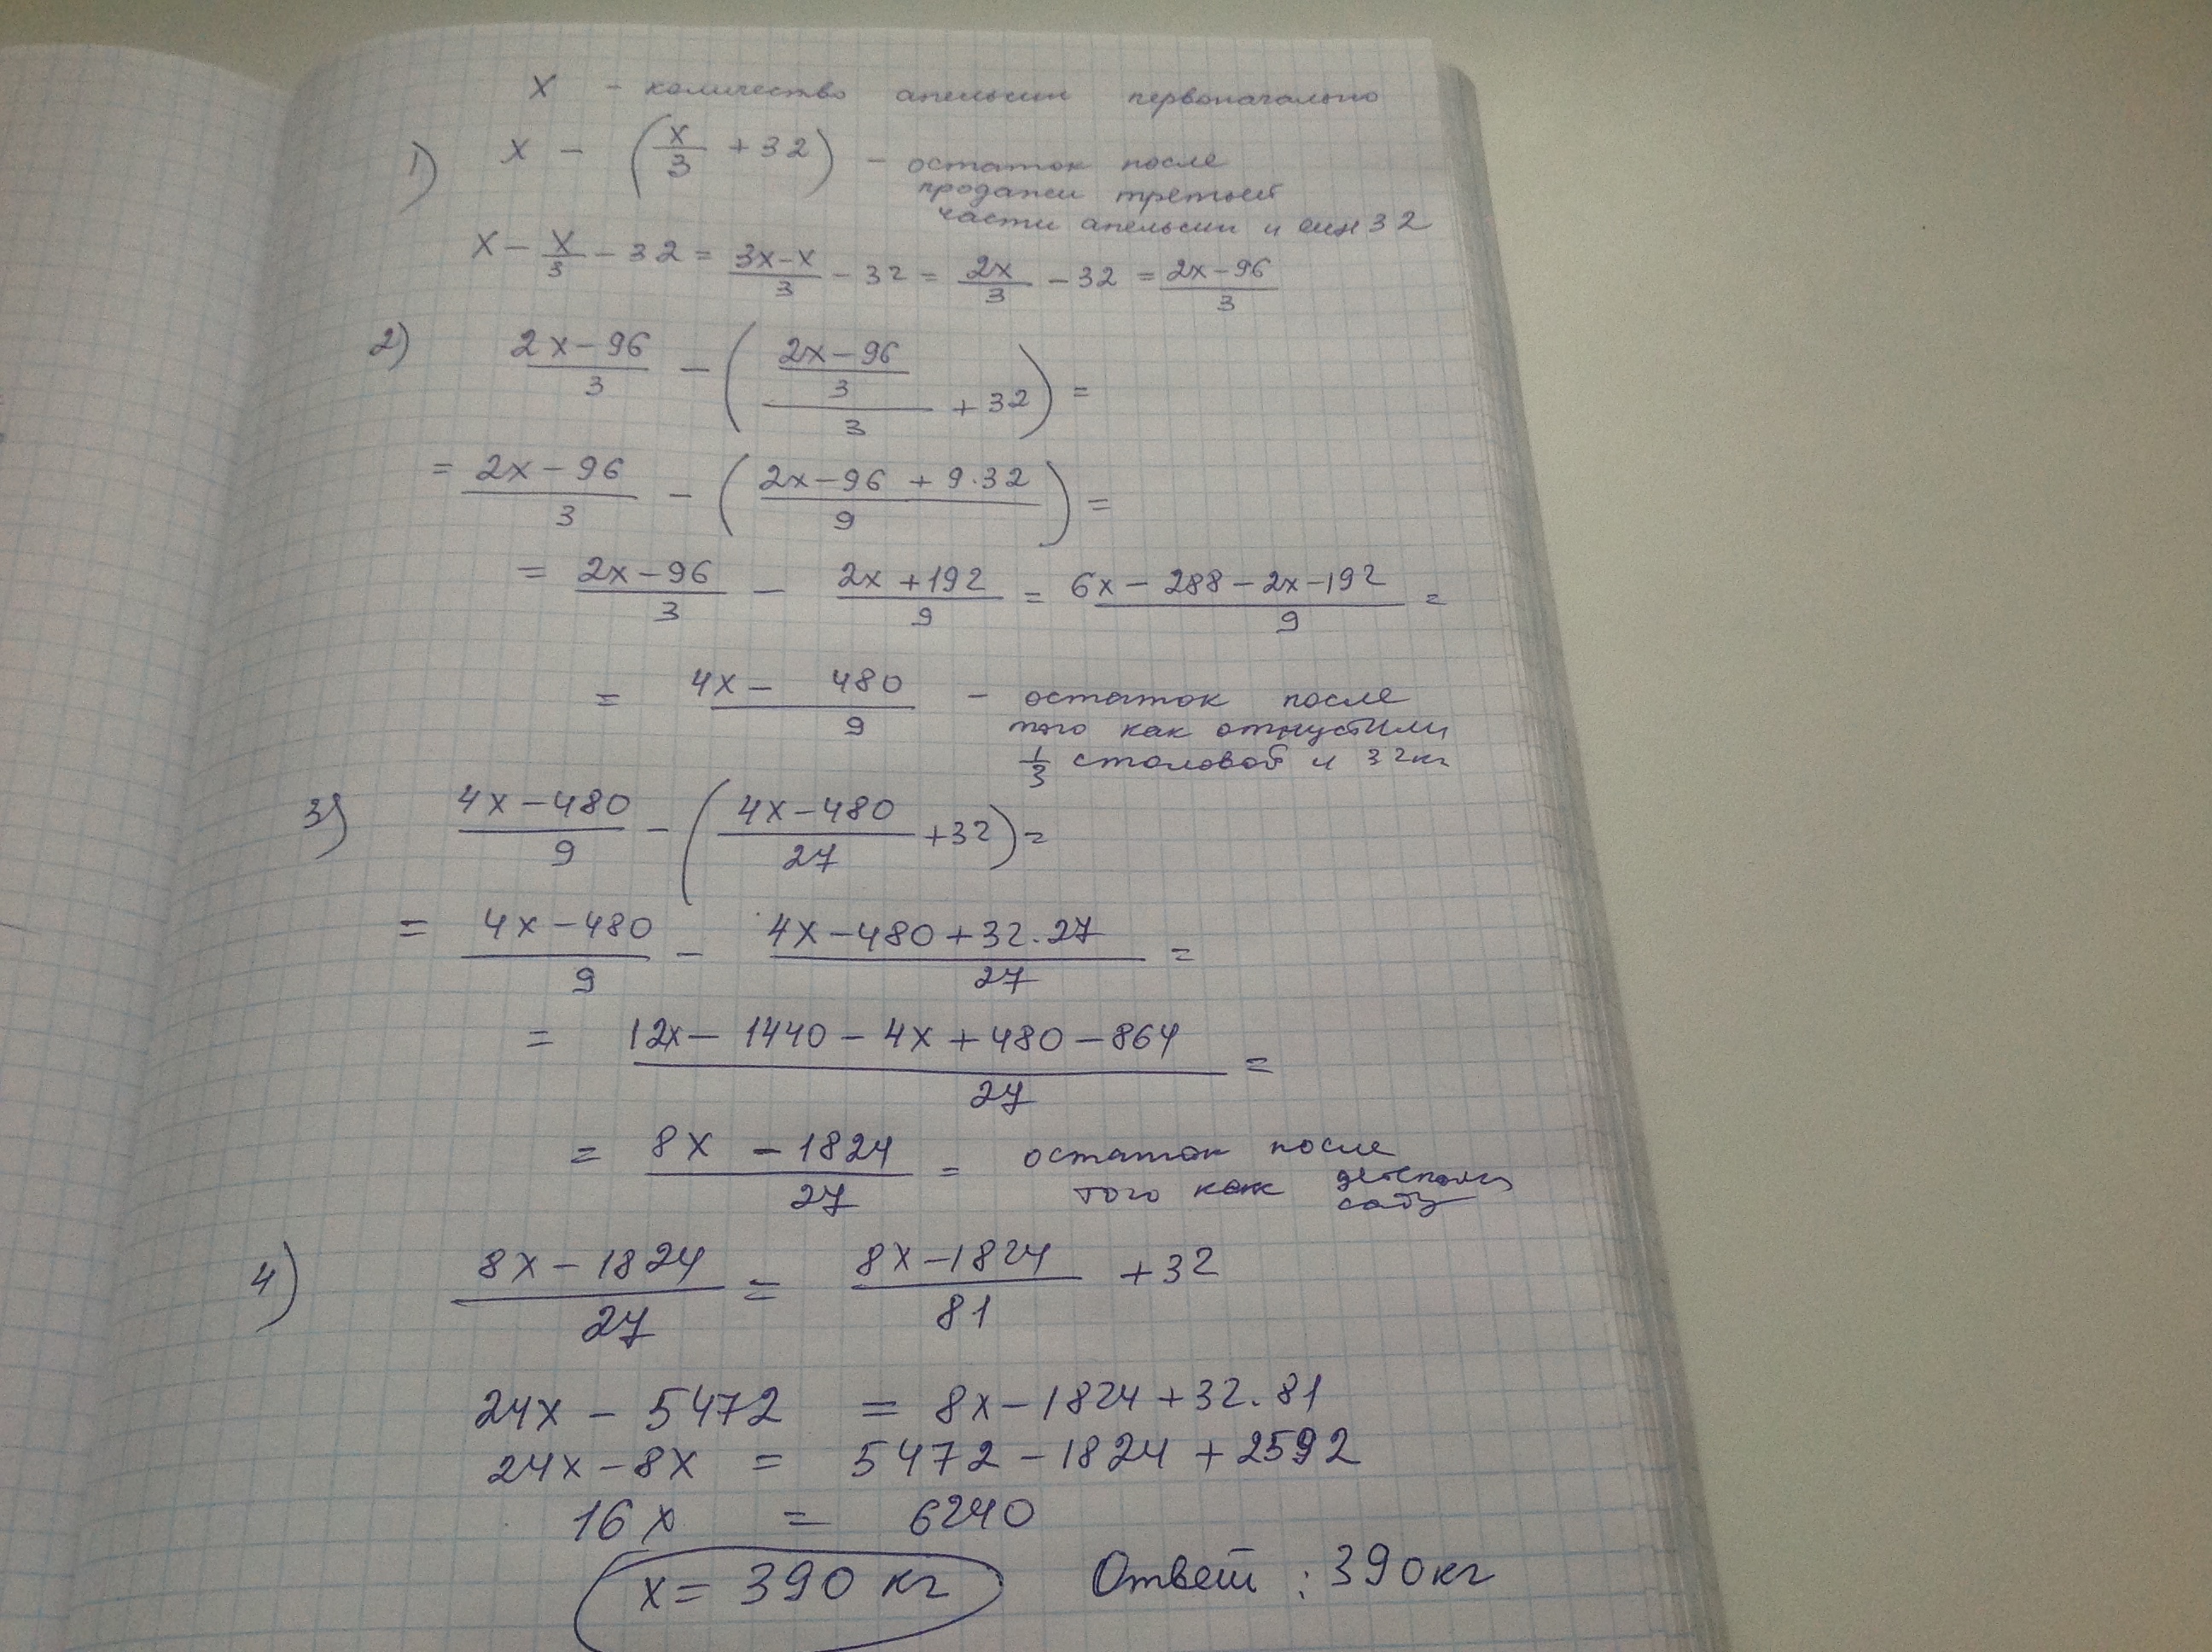 x - количество апельсин первоначально
1) x - (x/3 + 32) - остаток после
продажи третьей
части апельсин и еще 32
x - x/3 - 32 = (3x-x)/3 - 32 = 2x/3 - 32 = (2x-96)/3
2) (2x-96)/3 - (((2x-96)/3)/3 + 32) =
= (2x-96)/3 - ((2x-96+9·32)/9) =
= (2x-96)/3 - (2x+192)/9 = (6x-288-2x-192)/9 =
= (4x-480)/9 - остаток после
того как отпустили
1/3 столовой и 32кг
3) (4x-480)/9 - ((4x-480)/27 + 32) =
= (4x-480)/9 - (4x-480+32·27)/27 =
= (12x-1440-4x+480-864)/27 =
= (8x-1824)/27 = остаток после
того как
саду
4) (8x-1824)/27 = (8x-1824)/81 + 32
24x - 5472 = 8x-1824+32·81
24x-8x = 5472-1824+2592
16x = 6240
x = 390 кг Ответ: 390кг